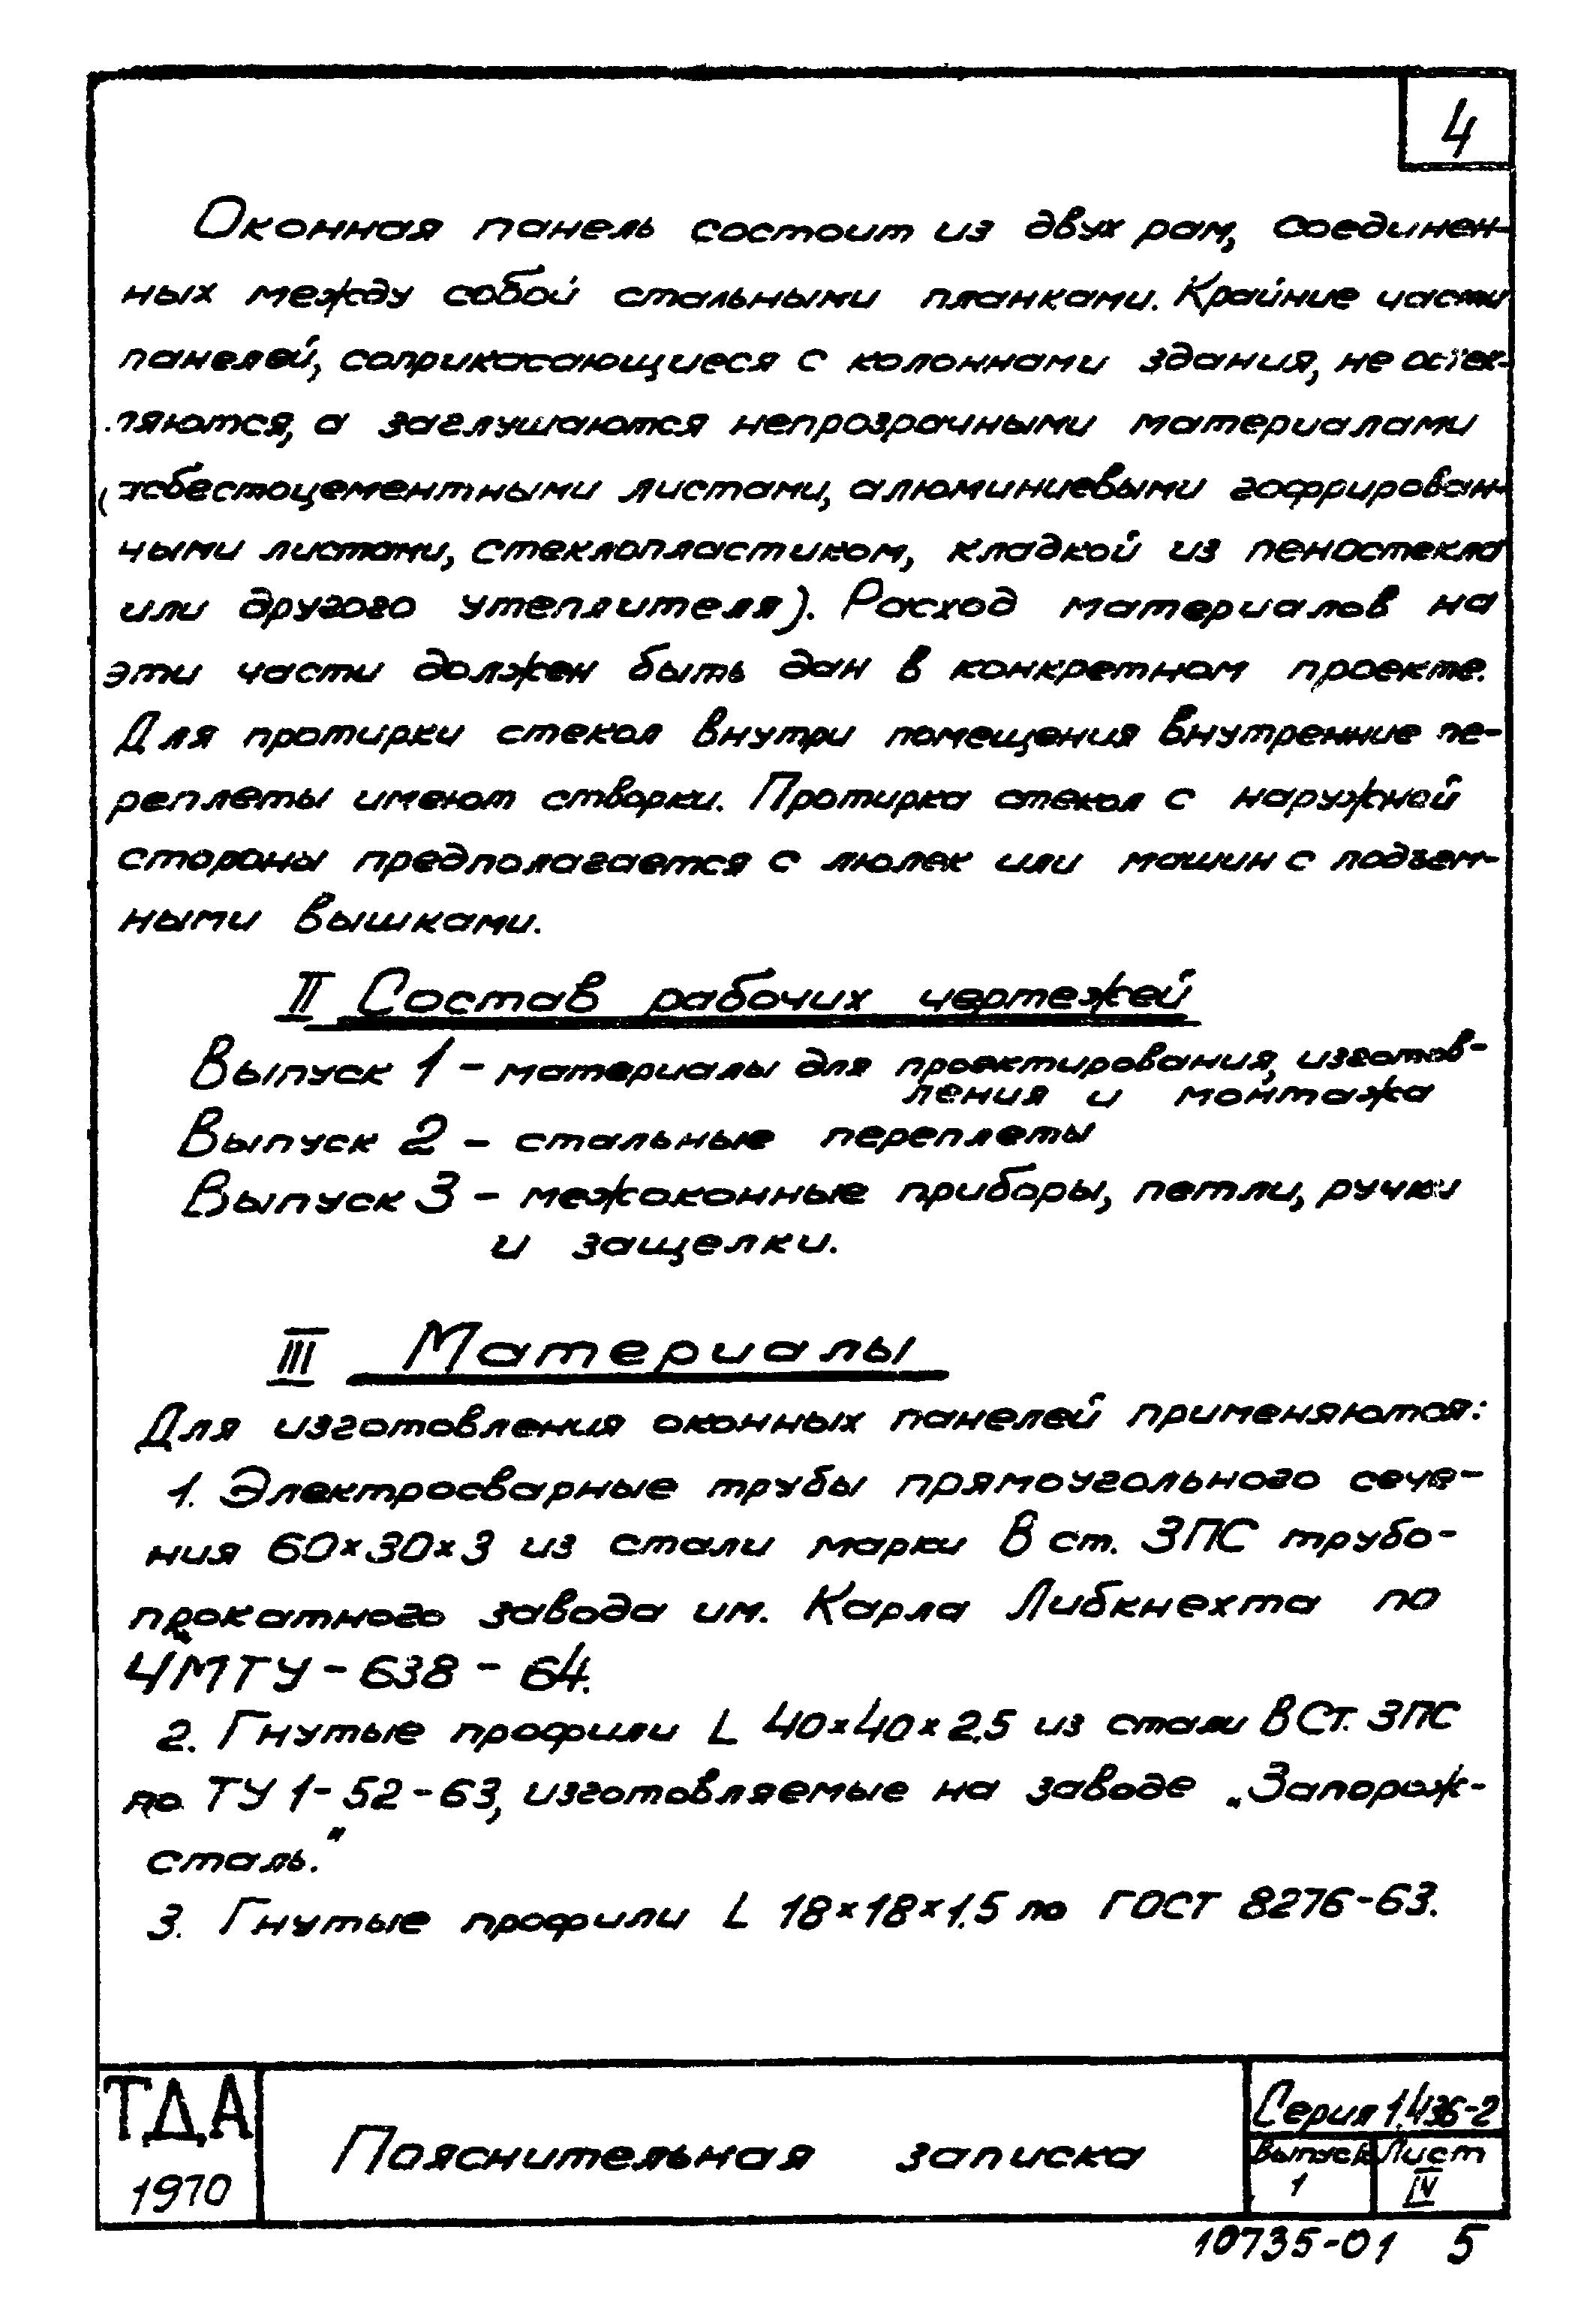 4
Оконная панель состоит из двух рам, соединен-
ных между собой стальными планками. Крайние части
панелей, соприкасающиеся с колоннами здания, не остек-
ляются, а заглушаются непрозрачными материалами
(асбестоцементными листами, алюминиевыми гофрирован-
ными листами, стеклопластиком, кладкой из пеностекла
или другого утеплителя). Расход материалов на
эти части должен быть дан в конкретном проекте.
Для протирки стекол внутри помещения внутренние пе-
реплеты имеют створки. Протирка стекол с наружней
стороны предполагается с люлек или машин с подъем-
ными вышками.
II Состав рабочих чертежей
Выпуск 1 - материалы для проектирования, изготов-
ления и монтажа
Выпуск 2 - стальные переплеты
Выпуск 3 - межоконные приборы, петли, ручки
и защелки.
III Материалы
Для изготовления оконных панелей применяются:
1. Электросварные трубы прямоугольного сече-
ния 60×30×3 из стали марки В ст. 3ПС трубо-
прокатного завода им. Карла Либкнехта по
ЧМТУ - 638 - 64.
2. Гнутые профили L 40×40×2,5 из стали В Ст. 3ПС
по ТУ 1-52-63, изготовляемые на заводе „Запорож-
сталь."
3. Гнутые профили L 18×18×1,5 по ГОСТ 8276-63.
ТДА
1970
Пояснительная записка
Серия 1.436-2
Выпуск Лист
1 IV
10735-01 5